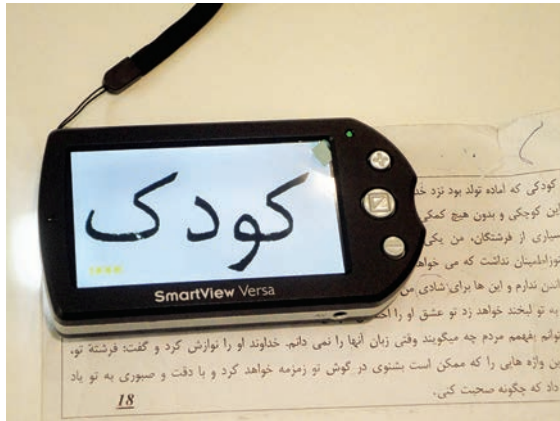 کودک
SmartView Versa
کودکی که آماده تولد بود نزد خد
این کوچکی و بدون هیچ کمکی
سیاری از فرشتگان، من یکی
نوزاداطمینان نداشت که می خواهد
اندن ندارم و این ها برای شادی من
به تو لبخند خواهد زد تو عشق او را احس
توانم بفهمم مردم چه میگویند وقتی زبان آنها را نمی دانم. خداوند او را نوازش کرد و گفت: فرشتهٔ تو،
ین واژه هایی را که ممکن است بشنوی در گوش تو زمزمه خواهد کرد و با دقت و صبوری به تو یاد
داد که چگونه صحبت کنی.
18